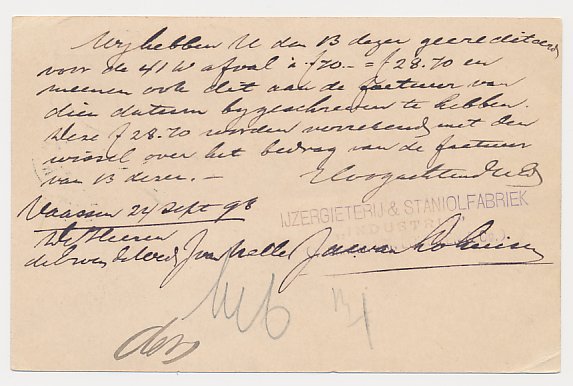 Wij hebben U den 13 dezer gecrediteerd
voor de 41 K° afval à f 70.- = f 28.70 en
meenen ook dit aan de factuur van
dien datum bijgeschreven te hebben.
Deze f 28.70 worden verrekend met den
wissel over het bedrag van de factuur
van 13 dezer. -
Hoogachtend
Vaassen 24 Sept 98
IJZERGIETERIJ & STANIOLFABRIEK
INDUSTRIE
De Heeren